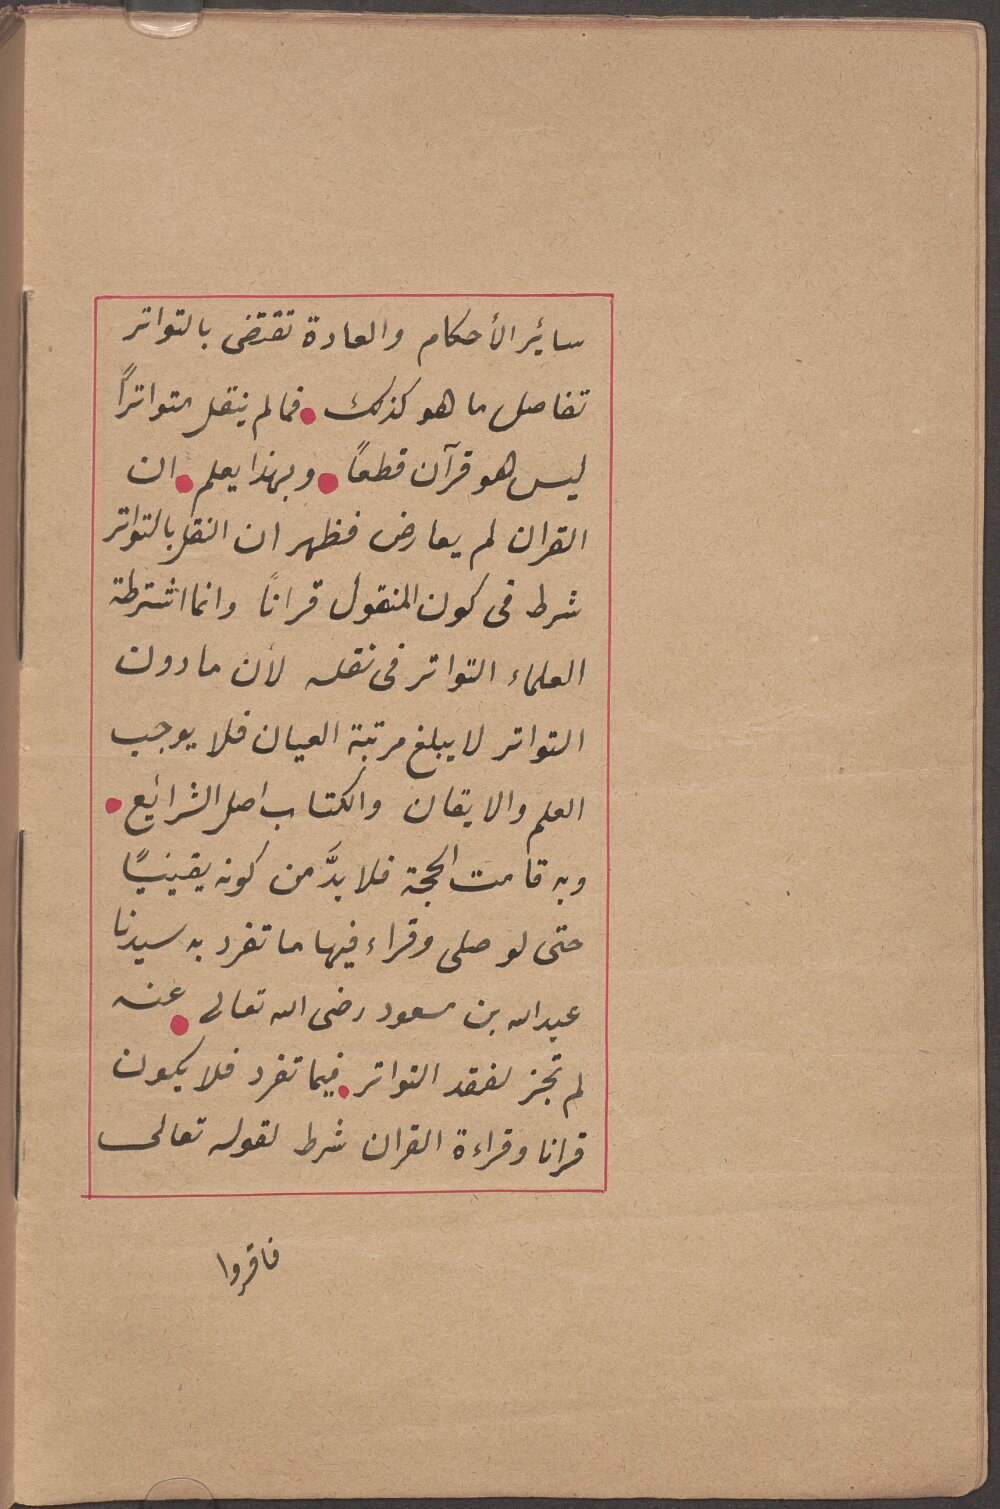 سائر الأحكام والعادة تقتضى بالتواتر
تفاصل ما هو كذلك . فما لم ينقل متواتراً
ليس هو قرآن قطعاً . وبهذا يعلم . ان
القران لم يعارض فظهر ان النقل بالتواتر
شرط فى كون المنقول قراناً وانما اشترطة
العلماء التواتر فى نقله لأن ما دون
التواتر لا يبلغ مرتبة العيان فلا يوجب
العلم والايقان والكتاب اصل الشرائع .
وبه قامت الحجة فلا بدَّ من كونه يقينيًا
حتى لو صلى وقراء فيها ما تفرد به سيدنا
عبدالله بن مسعود رضى الله تعالى عنه .
لم تجز لفقد التواتر . فيما تفرد فلا يكون
قرانا وقراءة القران شرط لقوله تعالى
فاقروا